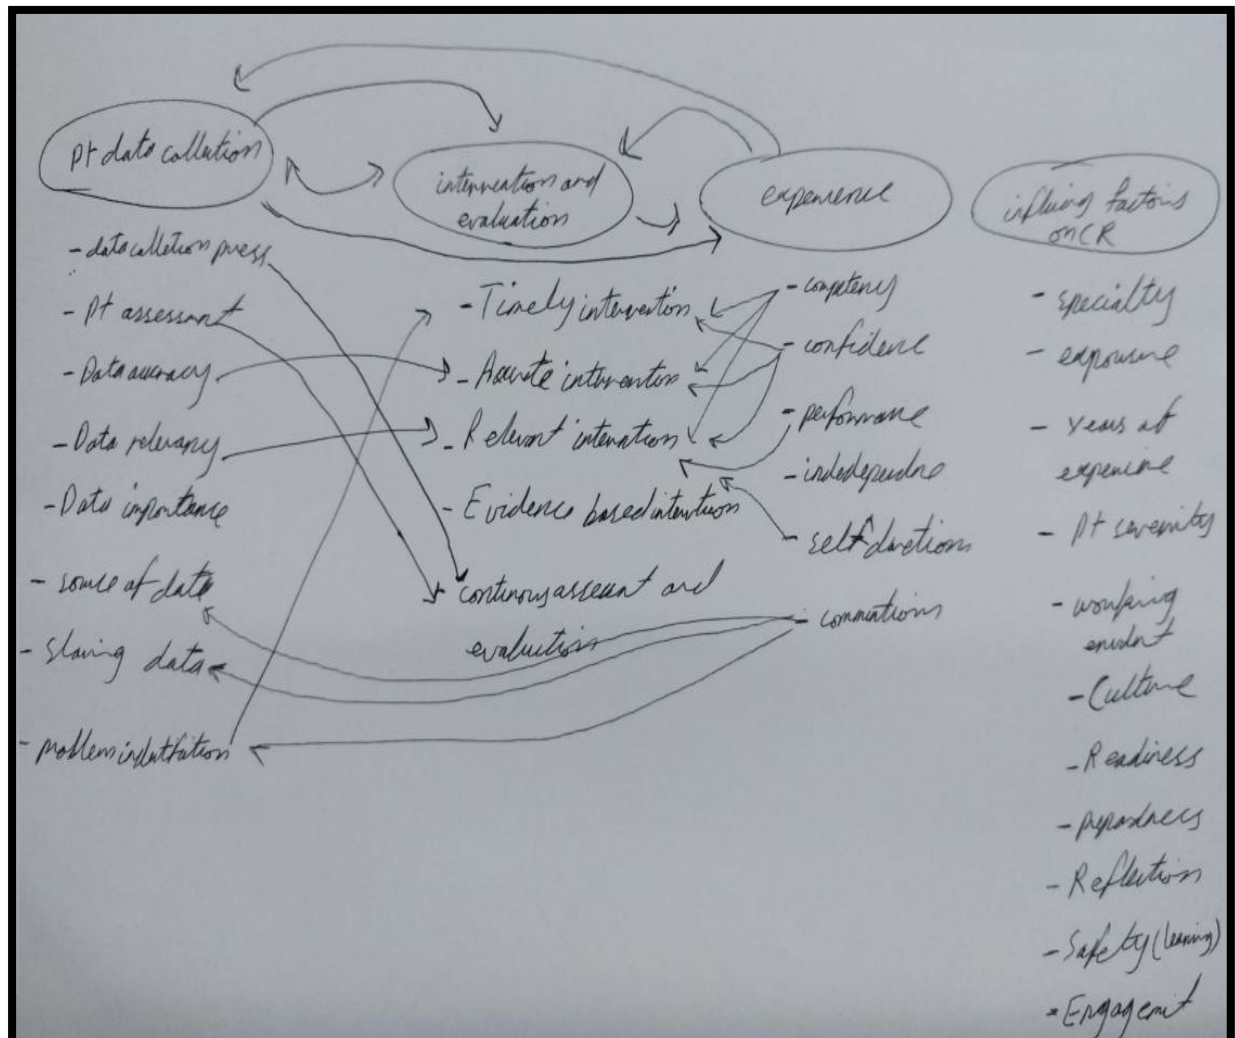 pt data collection
- data collection press
- Pt assessant
- Data auracy
- Data relevancy
- Data importance
- source of data
- data
- problem
intervention and
evaluation
- Timely intervention
- intervention
- Relevant intervention
- Evidence based intervention
- continous assesment and
evaluation
experience
- competency
- confidence
- performance
- indedependne
- self dirctions
-
factors
on CR
- specialty
- exposure
- years of
experience
- Pt severity
- working
- Culture
- Readiness
- Reflection
- Safety (learning)
- Engagemt